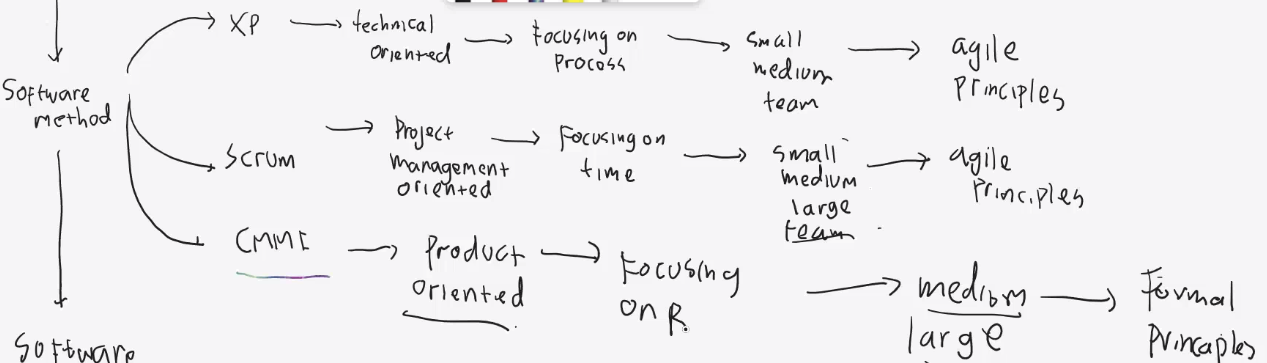 XP
technical
oriented
Focusing on
process
small
medium
team
agile
principles
Software
method
Scrum
Project
management
oriented
Focusing on
time
small
medium
large
team
agile
principles
CMMI
product
oriented
Focusing
on R
medium
large
Formal
principles
Software